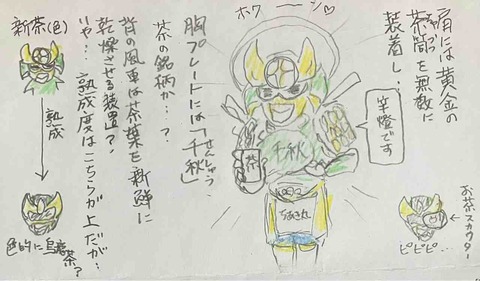 ホワーーン♡
肩には黄金の
茶筒を無敵に
装着し…
胸プレートには「千秋」
せんしゅう
茶の銘柄か…?
背の風車は茶葉を新鮮に
乾燥させる装置?
いや…熟成度はこちらが上だが…
新茶(色)
熟成
色的に烏龍茶?
竿燈です
千秋
茶
お茶スカウター
ピピピ…